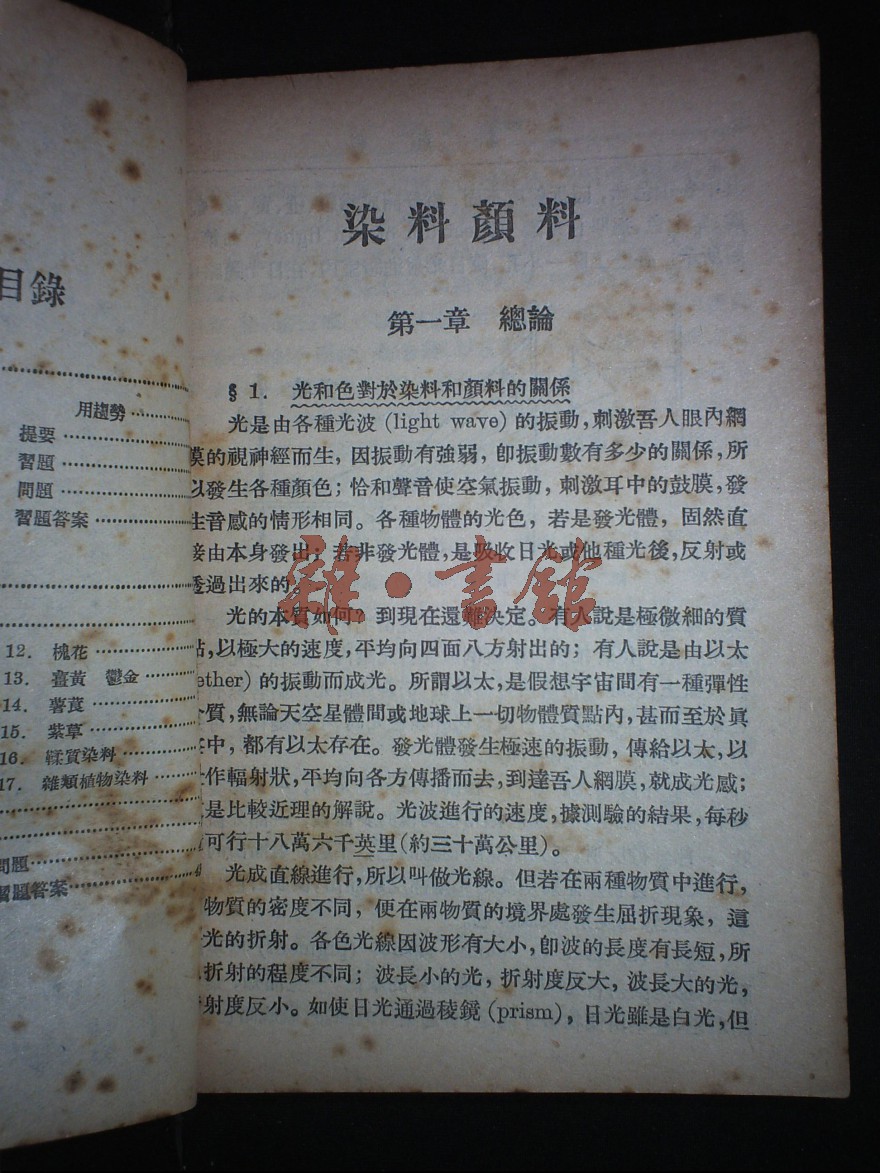 目錄
用趨勢
提要
習題
問題
習題答案
12. 槐花
13. 薑黃 鬱金
14. 薯莨
15. 紫草
16. 鞣質染料
17. 雜類植物染料
問題
習題答案
染料顏料
第一章 總論
§ 1. 光和色對於染料和顏料的關係
光是由各種光波 (light wave) 的振動,刺激吾人眼內網
膜的視神經而生,因振動有強弱,卽振動數有多少的關係,所
以發生各種顏色;恰和聲音使空氣振動,刺激耳中的鼓膜,發
生音感的情形相同。各種物體的光色,若是發光體,固然直
接由本身發出;若非發光體,是吸收日光或他種光後,反射或
透過出來的。
光的本質如何?到現在還難決定。有人說是極微細的質
點,以極大的速度,平均向四面八方射出的;有人說是由以太
ether) 的振動而成光。所謂以太,是假想宇宙間有一種彈性
介質,無論天空星體間或地球上一切物體質點內,甚而至於眞
空中,都有以太存在。發光體發生極速的振動,傳給以太,以
作輻射狀,平均向各方傳播而去,到達吾人網膜,就成光感;
是比較近理的解說。光波進行的速度,據測驗的結果,每秒
可行十八萬六千英里(約三十萬公里)。
光成直線進行,所以叫做光線。但若在兩種物質中進行,
物質的密度不同,便在兩物質的境界處發生屈折現象,這
光的折射。各色光線因波形有大小,卽波的長度有長短,所
折射的程度不同;波長小的光,折射度反大,波長大的光,
射度反小。如使日光通過稜鏡 (prism),日光雖是白光,但
雜·書館